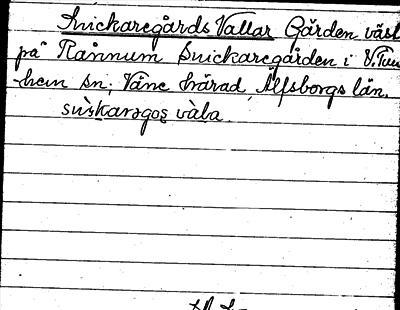 Snickaregårds Vallar Gärden väst
på Rånnum Snickaregården i V. Tun
hem sn; Väne härad Älfsborgs län.
sǹikarəgoş vàla